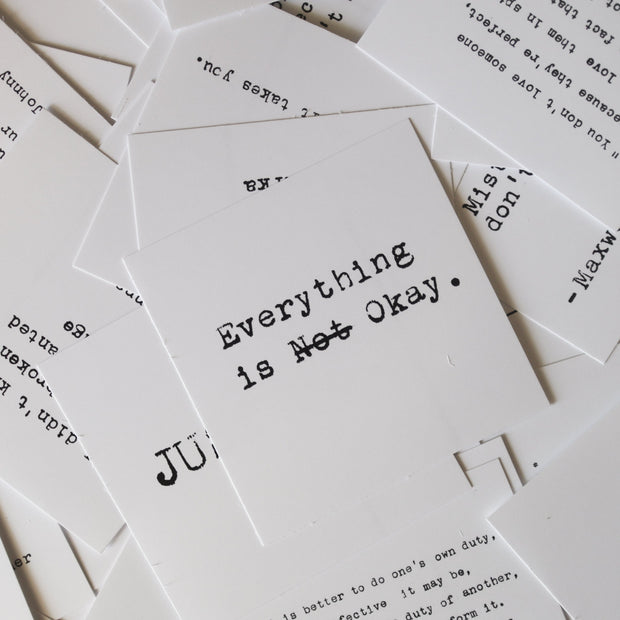 Everything
is Not Okay.
takes you.
" You don't love someone
because they're perfect,
love them in
fact that
don't
- Maxw
Johnny
ur
anted
broken
didn't k
JU
er
is better to do one's own duty,
fective it may be,
duty of another,
form it.